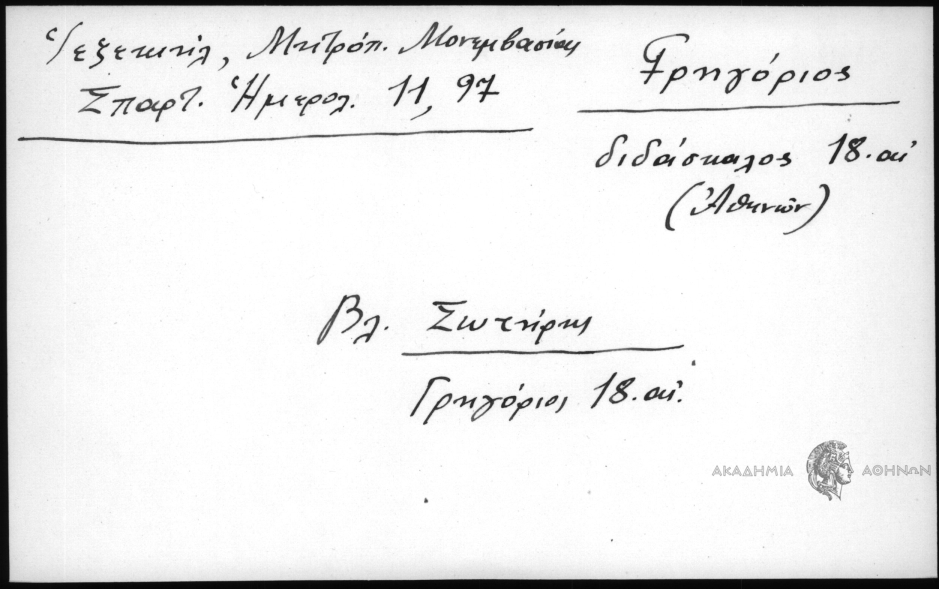 Ἰεζεκιήλ, Μητρόπ. Μονεμβασίας
Σπαρτ. Ἡμερολ. 11, 97
Γρηγόριος
διδάσκαλος 18. αἰ
(Ἀθηνῶν)
Βλ. Σωτήρης
Γρηγόριος 18. αἰ.
ΑΚΑΔΗΜΙΑ ΑΘΗΝΩΝ